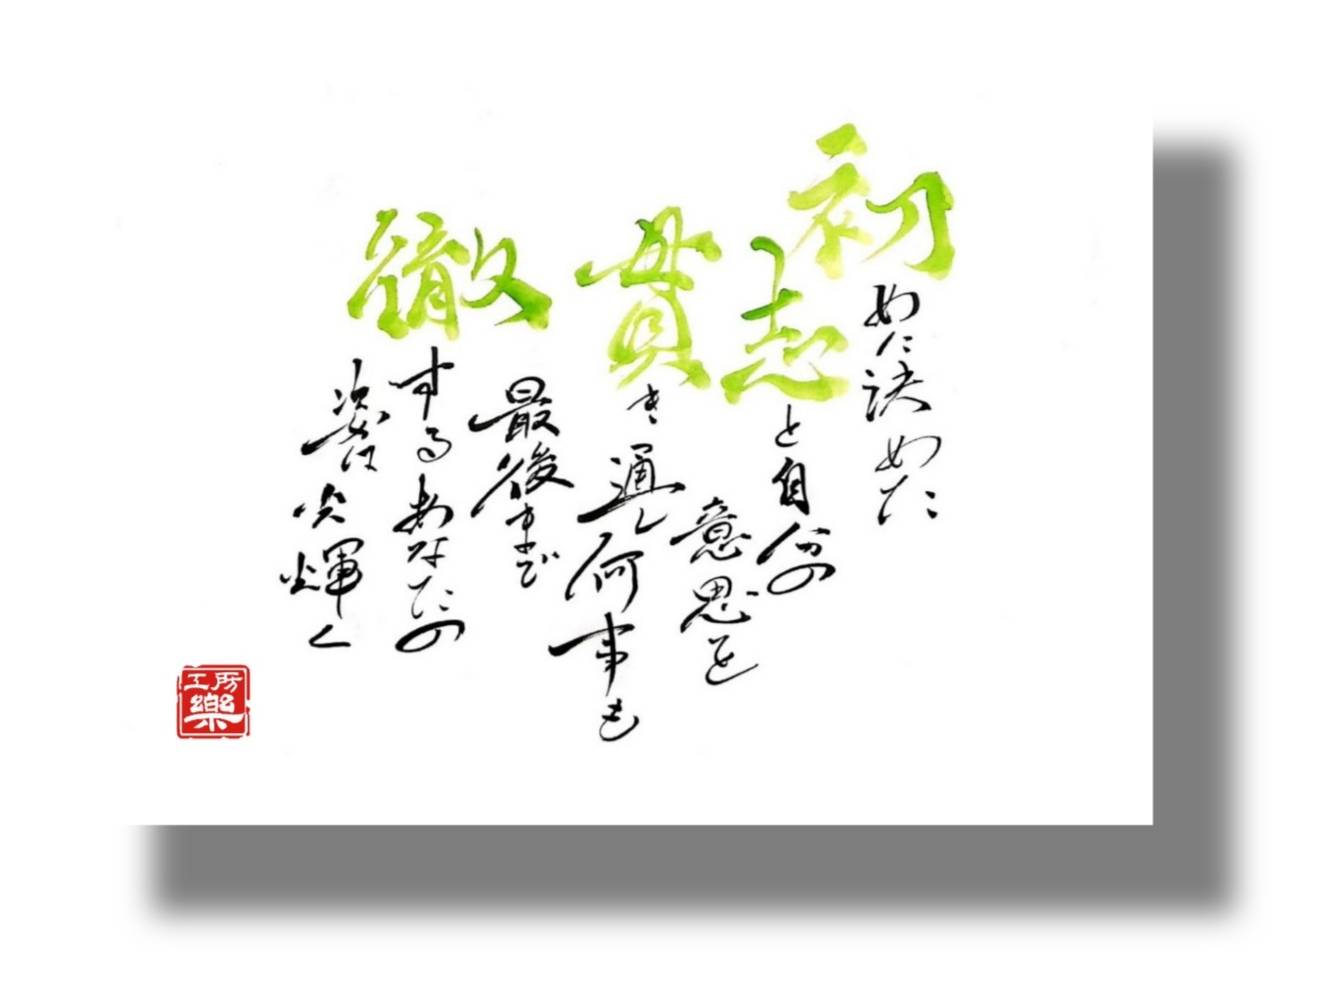 初めに決めた
志と自分の
意思を
貫き通し何事も
最後まで
徹するあなたの
姿は光輝く
工房
樂